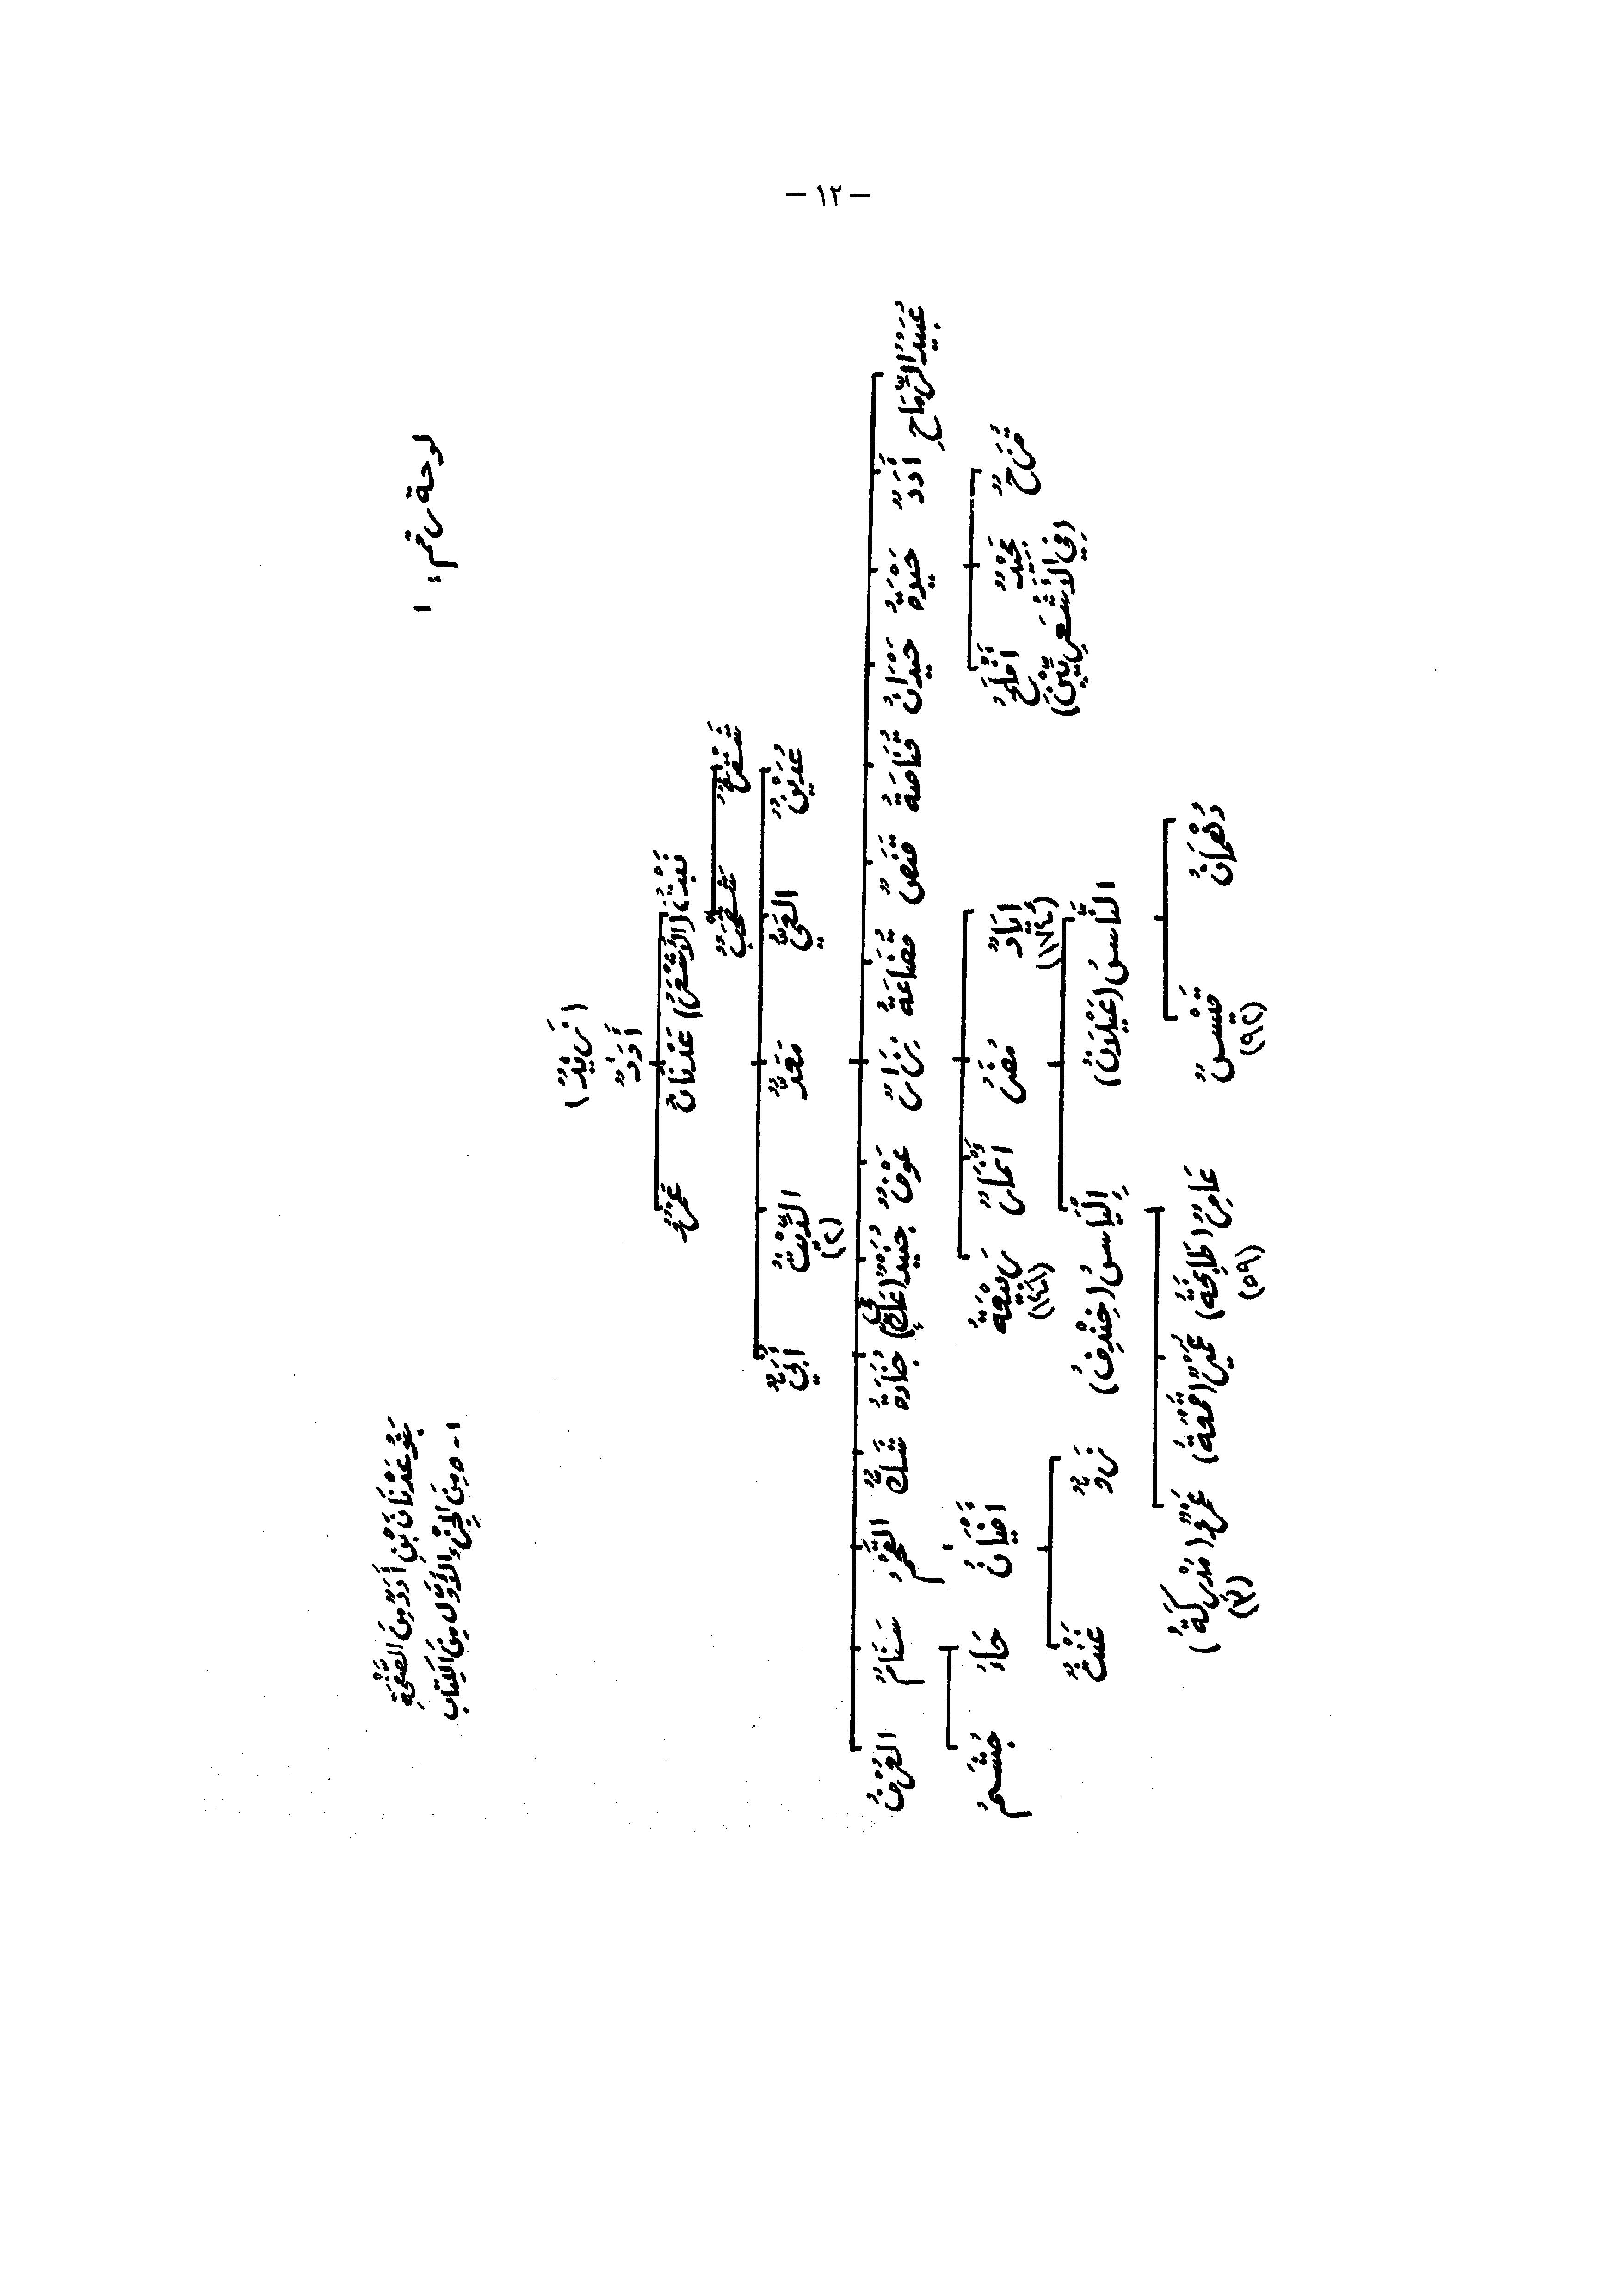 - ١٢ -
لوحة رقم: ١
بَنُو عَدْنَانَ بْنِ أُدَدٍ مِنَ الصَّفْحَةِ
١-٥ مِنَ الجُزْءِ الأَوَّلِ مِنَ الكِتَابِ
(زَيْدٌ)
أُدَدٌ
نَبْتٌ (الأَشْعَرُ) عَدْنَانُ عَمْرٌو
شَقَبٌ
عُدَيْنٌ العَيُّ مَعَدٌّ الدَّيْثُ أُبَيٌّ
(٢)
عُبَيْدُ الرَّمَّاحِ أُدَدٌ حَيْدَةُ حَيْدَانُ قُنَاصَةُ قَنَصٌ قُضَاعَةُ نِزَارٌ عَوْفٌ جُنَيْدٌ (فِي عَكٍّ) جُنَادَةُ شَكٌّ القُحْمُ سَنَامٌ العُرْفُ
قُزَحٌ أَفْلَحُ
(فِي الأَشْعَرِيِّينَ)
إِيَادٌ مُضَرُ أَنْمَارٌ رَبِيعَةُ أَفْيَانُ حَاءُ جُشَمُ
(١٧٤) (١٤١)
النَّاسُ (عَيْلَانُ) إِلْيَاسُ (خِنْدِفُ)
دُهْمَانُ قَيْسٌ عَامِرٌ (طَابِخَةُ) عُمَيْرٌ (قَمَعَةُ) عَمْرٌو (مُدْرِكَةُ)
(٩٢) (٥٩) (٣)